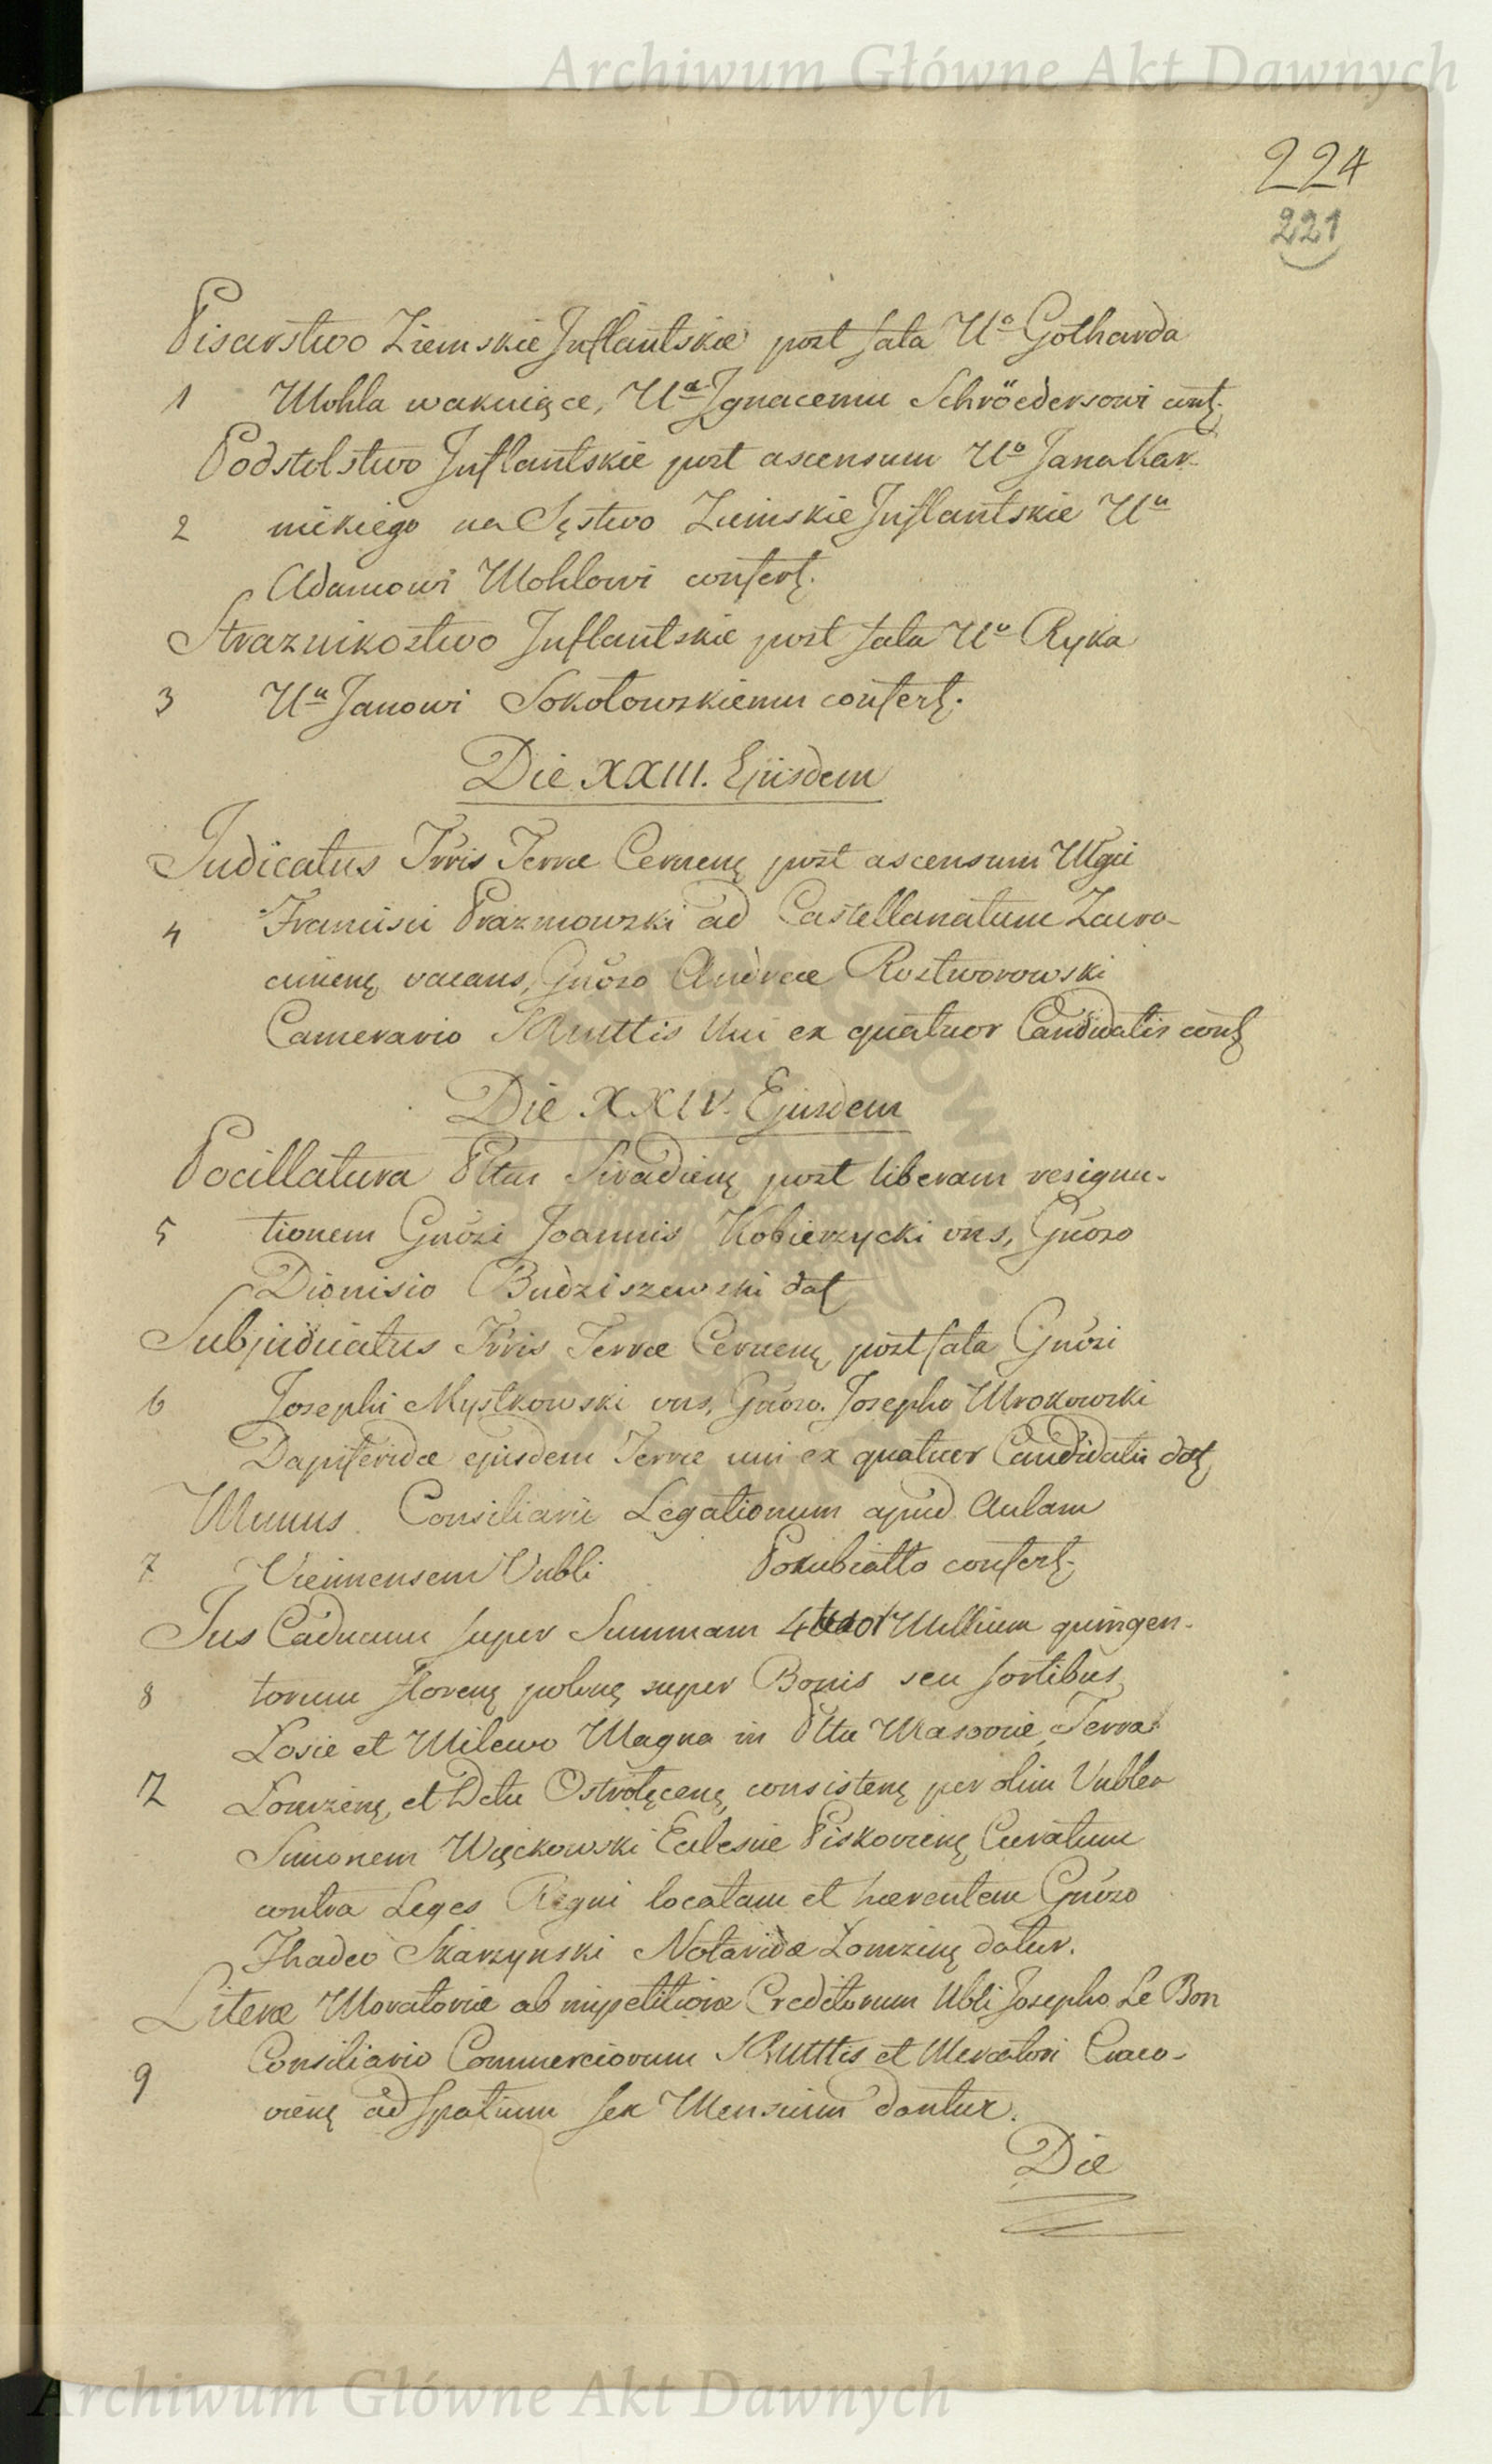 Archiwum Główne Akt Dawnych
224
221
Pisarstwo Ziemskie Inflantskie post fata Uo Gotharda
1 Mohla wakuiące, Ua Ignacemu Schröedersowi conf.
Podstolstwo Inflantskie post ascensum Uo Jana Kar-
2 nickiego na Sęstwo Ziemskie Inflantskie Uu
Adamowi Mohlowi confert.
Straznikostwo Inflantskie post fata Uo Ryka
3 Uu Janowi Sokołowskiemu confert.
Die XXIII. Ejusdem
Judicatus Trris Terrae Cernens post ascensum Mgci
4 Francisci Prazmowski ad Castellanatum Zacro-
cimens vacans, Gnoso Andreae Roztworowski
Camerario SRMttis Uni ex quatuor Candidatis conf
Die XXIV. Ejusdem
Pocillatura Plttus Siradiens post liberam resigna-
5 tionem Gnosi Joannis Kobierzycki vns, Gnoso
Dionisio Budziszewski dat
Subjudicatus Trris Terrae Cernens post fata Gnosi
6 Josephi Mystkowski vns, Gnoso. Josepho Mrokowski
Dapiferidae ejusdem Terrae uni ex quatuor Candidatis dat
Munus Consiliarii Legationum apud Aulam
7 Viennensem Vubli Pokubiatto confert.
Jus Caducum super Summam 4or Millium quingen-
8 torum Florens polons super Bonis seu fortibus
Losie et Milewo Magna in Plttu Masoviae, Terra
Lomzens, et Dctu Ostrołęcens, consistens per olim Vublem
Simonem Więckowski Eclesiae Piskoviens Curatum
contra Leges Regni locatam et haerentem Gnoso
Thadeo Skarzynski Notaridae Lomzens datur.
Literae Moratoriae ab impetitione Creditorum Ubli Josepho Le Bon
9 Consiliario Commerciorum SRMttis et Mercatori Craco-
viens ad spatium sex Mensium dantur.
Die
Archiwum Główne Akt Dawnych